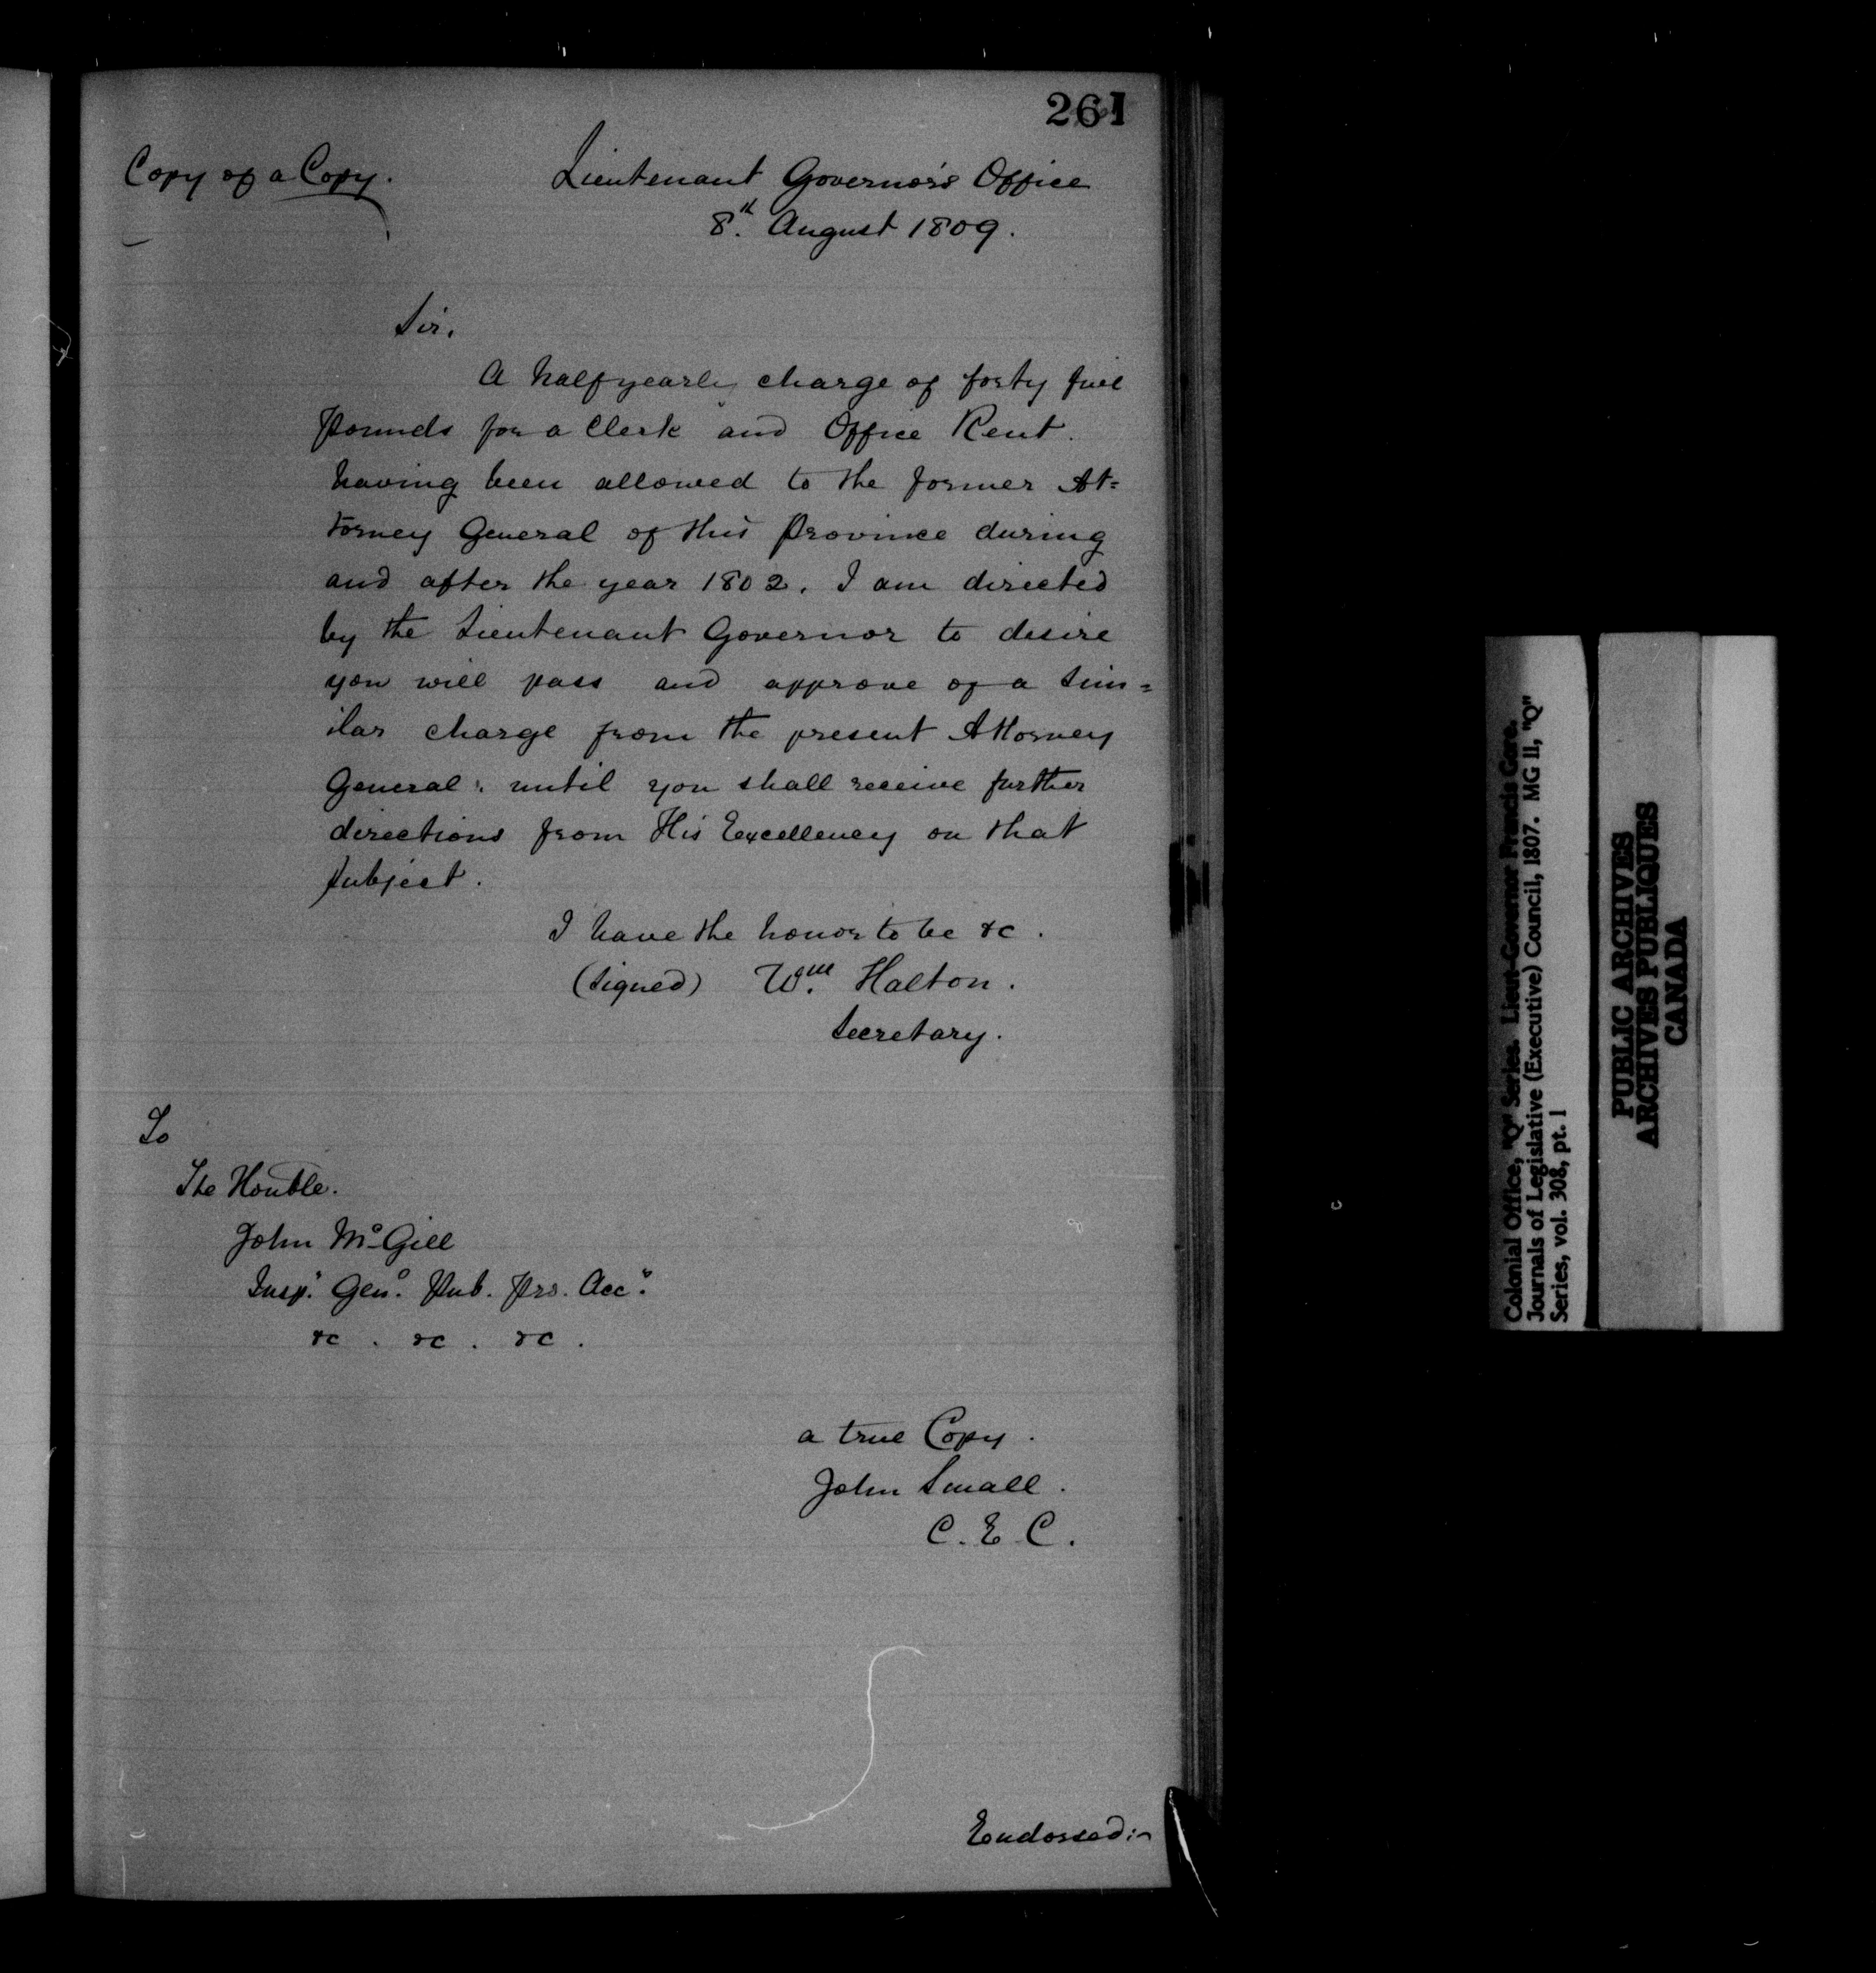 261
Copy of a Copy.
Lieutenant Governor's Office
8th. August 1809.
Sir,
A half yearly charge of forty five
Pounds for a Clerk and Office Rent.
having been allowed to the former At=
torney General of this Province during
and after the year 1802. I am directed
by the Lieutenant Governor to desire
you will pass and approve of a Sim=
ilar charge from the present Attorney
General: until you shall receive further
directions from His Excellency on that
Subject.
I have the honor to be &c.
(Signed) Wm. Halton.
Secretary.
To
The Honble.
John McGill
Insp.r Gen.l Pub. Pro. Acc.s
&c. &c. &c.
a true Copy.
John Small.
C. E. C.
Endorsed:-
Colonial Office, "Q" Series. Lieut-Governor Francis Gore.
Journals of Legislative (Executive) Council, 1807. MG 11, "Q"
Series, vol. 308, pt. 1
PUBLIC ARCHIVES
ARCHIVES PUBLIQUES
CANADA